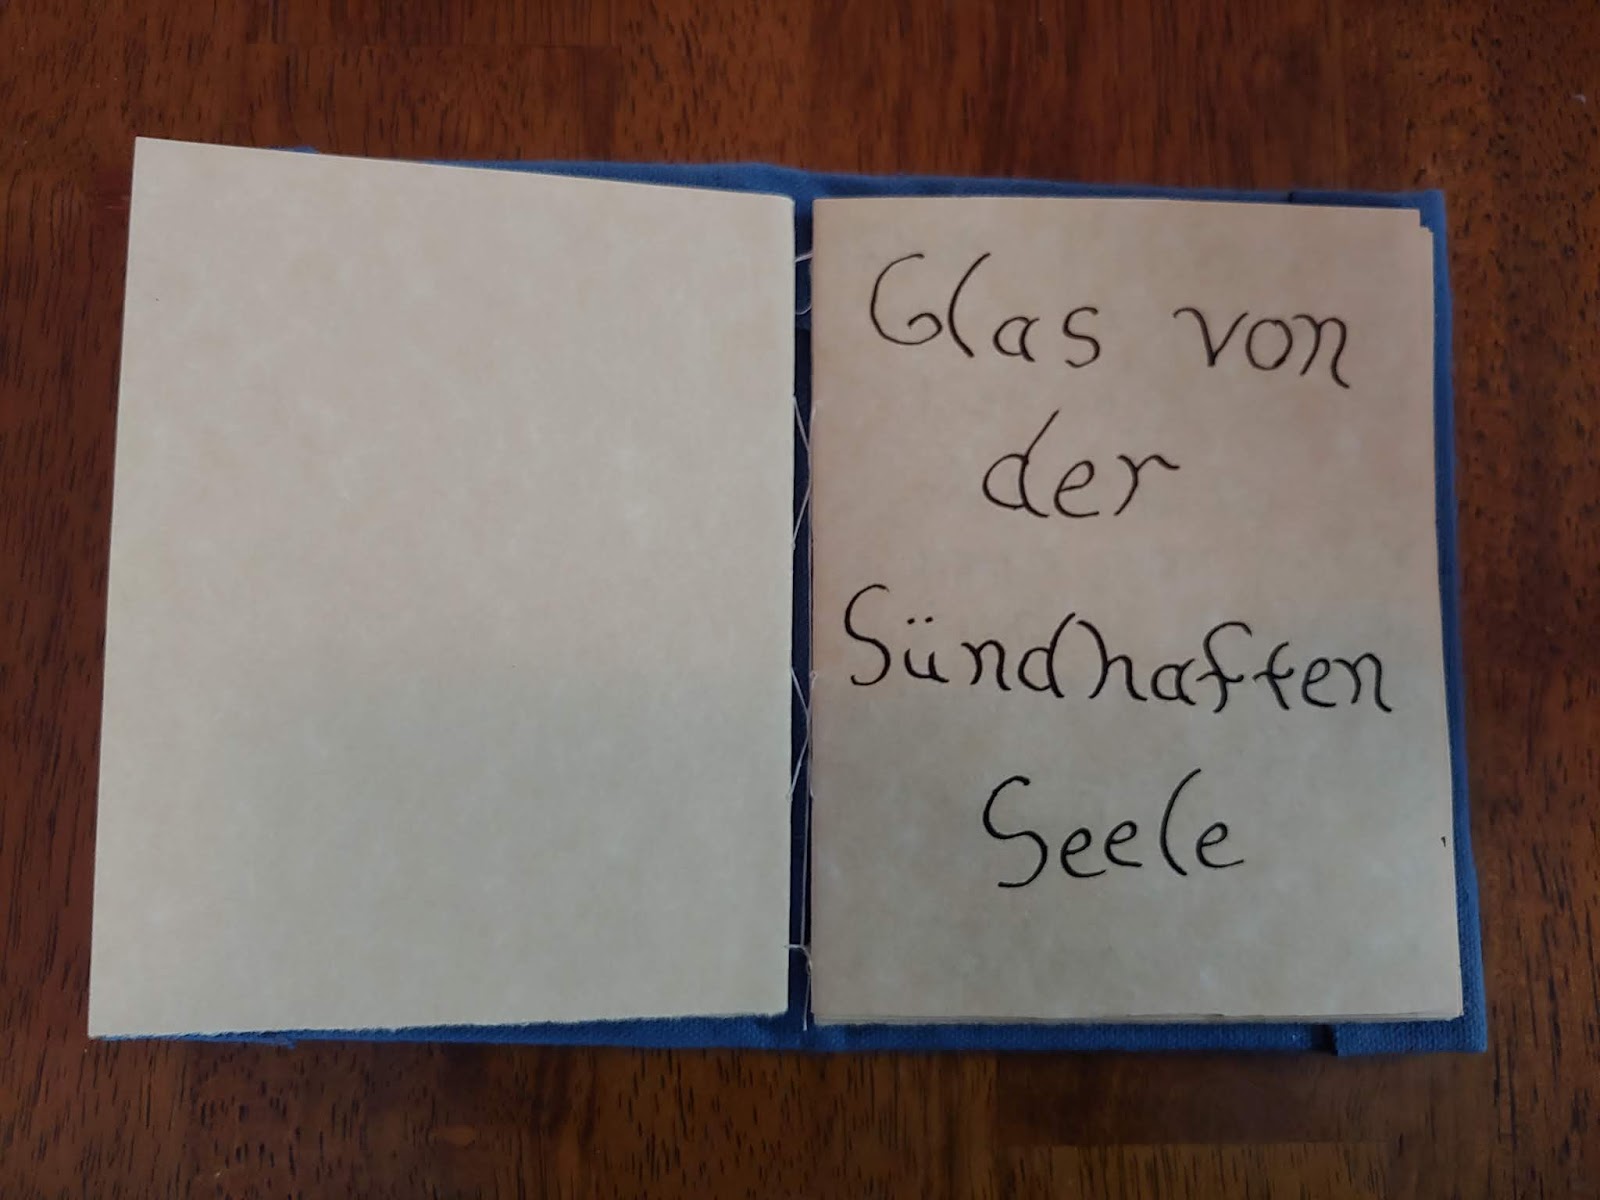 Glas von
der
Sündhaften
Seele